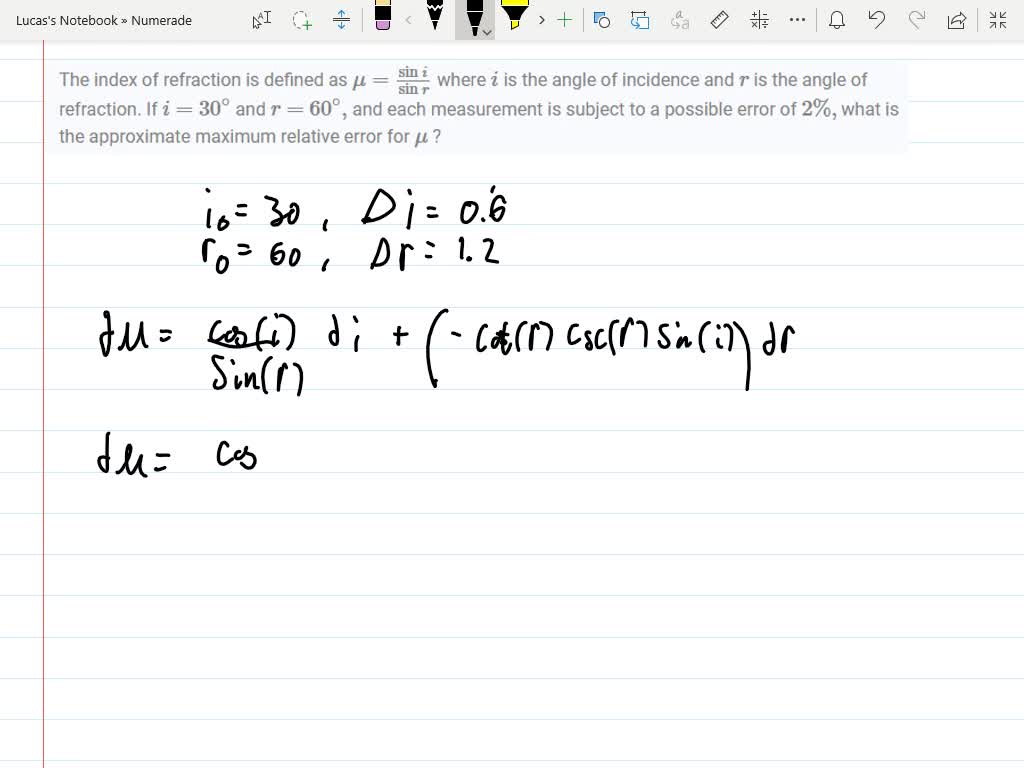 Lucas's Notebook » Numerade
The index of refraction is defined as μ = sin i / sin r where i is the angle of incidence and r is the angle of
refraction. If i = 30° and r = 60°, and each measurement is subject to a possible error of 2%, what is
the approximate maximum relative error for μ ?
i₀ = 30 , Δi = 0.6
r₀ = 60 , Δr = 1.2
dμ = cos(i) / sin(r) di + (- cot(r) csc(r) sin(i)) dr
dμ = cos